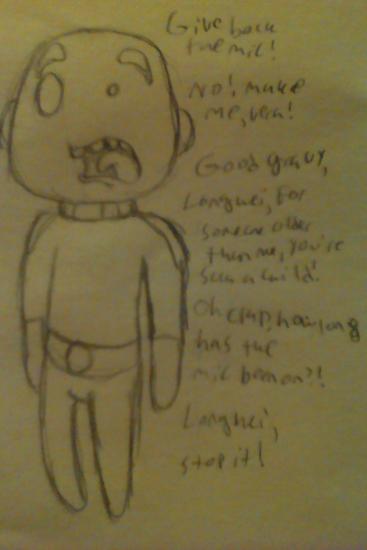 Give back
the mic!
No! make
me, Vera!
Good gravy,
Langhei, for
someone older
then me, you're
such a child!
Oh crap, how long
has the
mic been on?!
Langhei,
stop it!